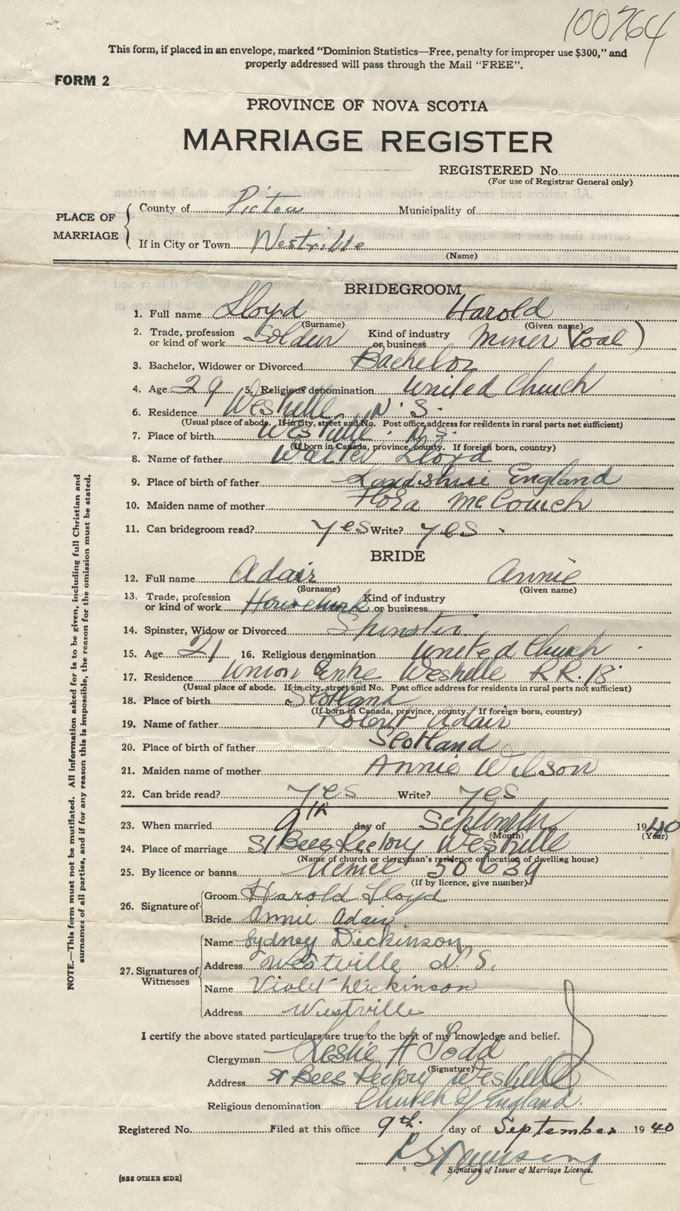 100764
This form, if placed in an envelope, marked "Dominion Statistics—Free, penalty for improper use $300," and
properly addressed will pass through the Mail "FREE".
FORM 2
PROVINCE OF NOVA SCOTIA
MARRIAGE REGISTER
REGISTERED No.
(For use of Registrar General only)
PLACE OF MARRIAGE
County of Pictou Municipality of
If in City or Town Westville
(Name)
BRIDEGROOM
1. Full name Lloyd Harold
(Surname) (Given name)
2. Trade, profession or kind of work Soldier Kind of industry or business Miner (Coal)
3. Bachelor, Widower or Divorced Bachelor
4. Age 29 5. Religious denomination United Church
6. Residence Westville N.S.
(Usual place of abode. If in city, street and No. Post office address for residents in rural parts not sufficient)
7. Place of birth Westville N.S.
(If born in Canada, province, county. If foreign born, country)
8. Name of father Walter Lloyd
9. Place of birth of father England
10. Maiden name of mother Flora
11. Can bridegroom read? Yes Write? Yes.
BRIDE
12. Full name Adair Annie
(Surname) (Given name)
13. Trade, profession or kind of work Housework Kind of industry or business
14. Spinster, Widow or Divorced Spinster
15. Age 21 16. Religious denomination United Church
17. Residence Union Centre Westville R.R.
(Usual place of abode. If in city, street and No. Post office address for residents in rural parts not sufficient)
18. Place of birth Scotland
(If born in Canada, province, county. If foreign born, country)
19. Name of father Robert Adair
20. Place of birth of father Scotland
21. Maiden name of mother Annie Wilson
22. Can bride read? Yes Write? Yes
23. When married 9th day of September 1940
(Month) (Year)
24. Place of marriage St Bees Rectory Westville
(Name of church or clergyman's residence or location of dwelling house)
25. By licence or banns 50639
(If by licence, give number)
26. Signature of
Groom Harold Lloyd
Bride Annie Adair
27. Signatures of Witnesses
Name Sydney Dickinson
Address Westville N.S.
Name Violet Dickinson
Address Westville
I certify the above stated particulars are true to the best of my knowledge and belief.
Clergyman Leslie H Todd
(Signature)
Address St Bees Rectory Westville
Religious denomination Church of England
Registered No. Filed at this office 9th. day of September 1940
Signature of Issuer of Marriage Licence.
[SEE OTHER SIDE]
NOTE.—This form must not be mutilated. All information asked for is to be given, including full Christian and
surnames of all parties, and if for any reason this is impossible, the reason for the omission must be stated.